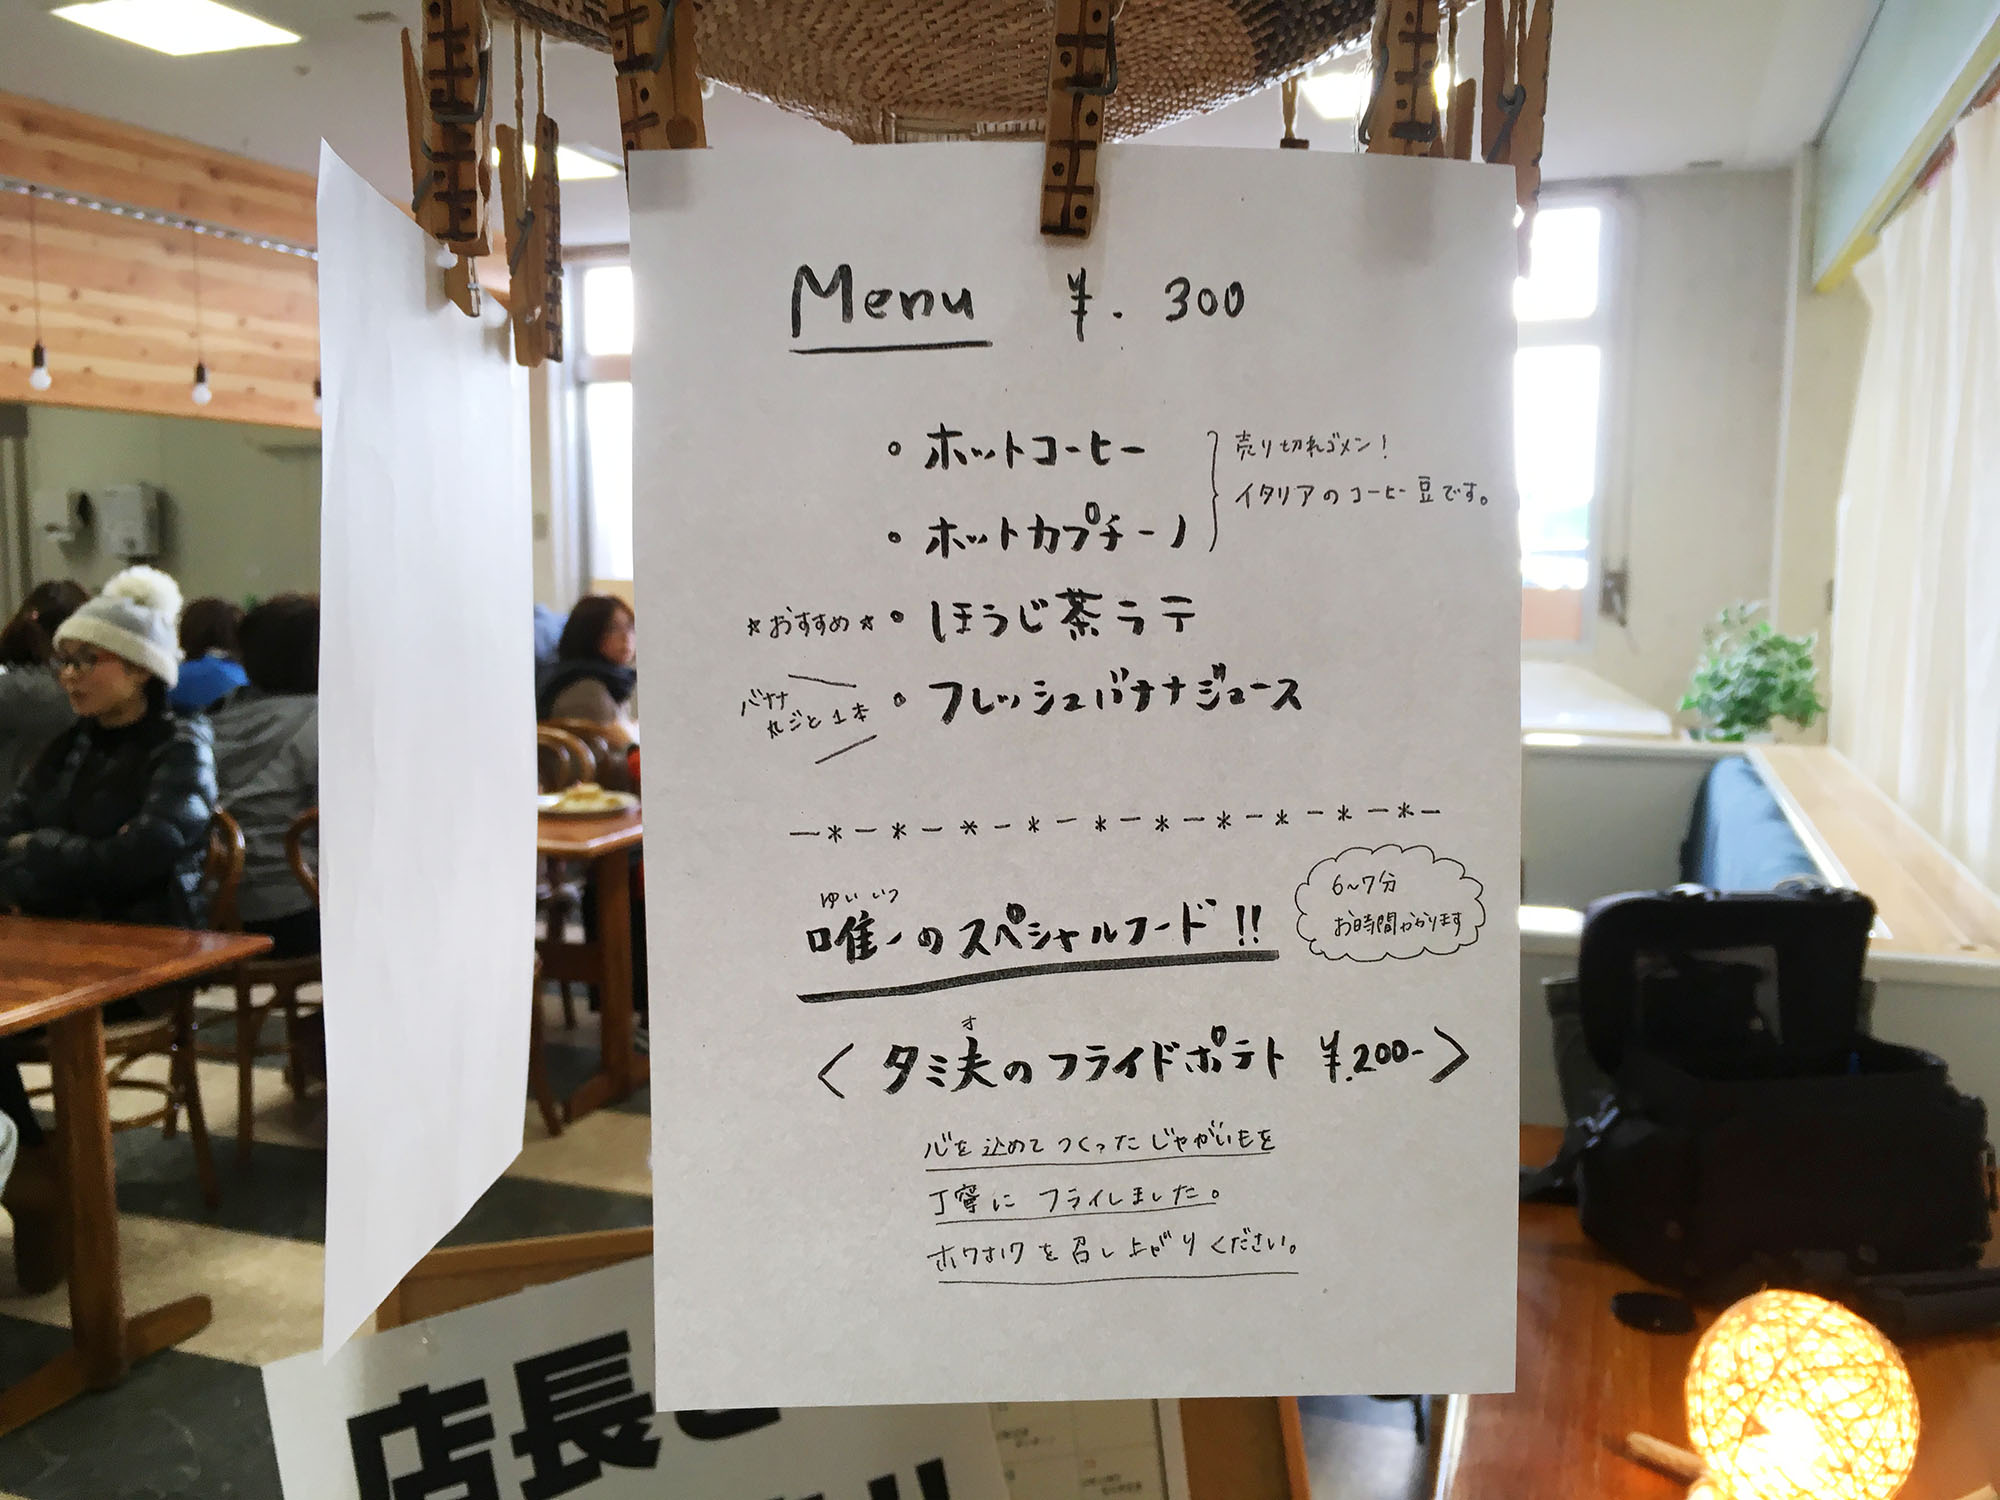 Menu ¥. 300
・ホットコーヒー
・ホットカプチーノ
売り切れゴメン！
イタリアのコーヒー豆です。
☆おすすめ☆・ほうじ茶ラテ
バナナ
丸ごと1本
・フレッシュバナナジュース
ー*ー*ー*ー*ー*ー*ー*ー*ー*ー*ー
ゆいいつ
唯一のスペシャルフード!!
6〜7分
お時間かかります
オ
〈タミ夫のフライドポテト ¥.200-〉
心を込めてつくったじゃがいもを
丁寧にフライしました。
ホクホクを召し上がりください。
店長